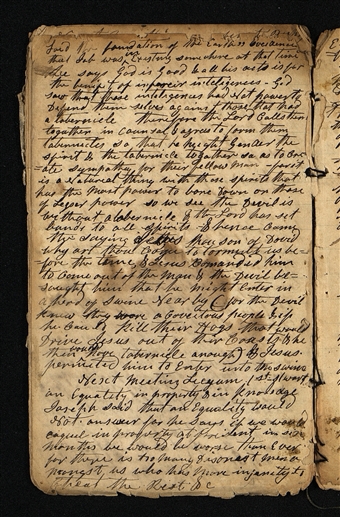 foundation of the Earth & became
that Job was Existing somewhere at that time
he says God is Good & all his acts is for
the benefit of inferior inteligences - God
saw that those inteligences had Not power to
Defend themselves against those that had
a tabernicle therefore the Lord Calls them
together in counsel & agrees to form them
tabernicles so that he might Gender the
spirit & the tabernicle together so as to Cre-
ate sympathy for their fellow man - for it
is a Natural thing with those spirits that
has the most power to bore down on those
of Lesser power so we see the Devil is
without a tabernicle & the Lord has set
bands to all spirits & hence Come
the Saying thou son of David
why art thou Come to torment us be-
fore the time & Jesus Comanded him
to Come out of the man & the Devil be-
saught him that he might Enter in
a herd of swine Near by (for the Devil
knew they were a Coveitous people & if
he Could Kill their Hogs that would
Drive Jesus out of their Coasts & he
then would have tabernicle anough) & Jesus
permitted him to Enter into the swine
Next Meating Lecgam
an Equality in property & in knowledge
Joseph Said that an Equality would
Not answer for he Says if we would
equeel in property at President in six
months we would be worse than Ever
for there is too many Disonest men a-
mongst us who has more ingenuity to
cheat the Rest &c